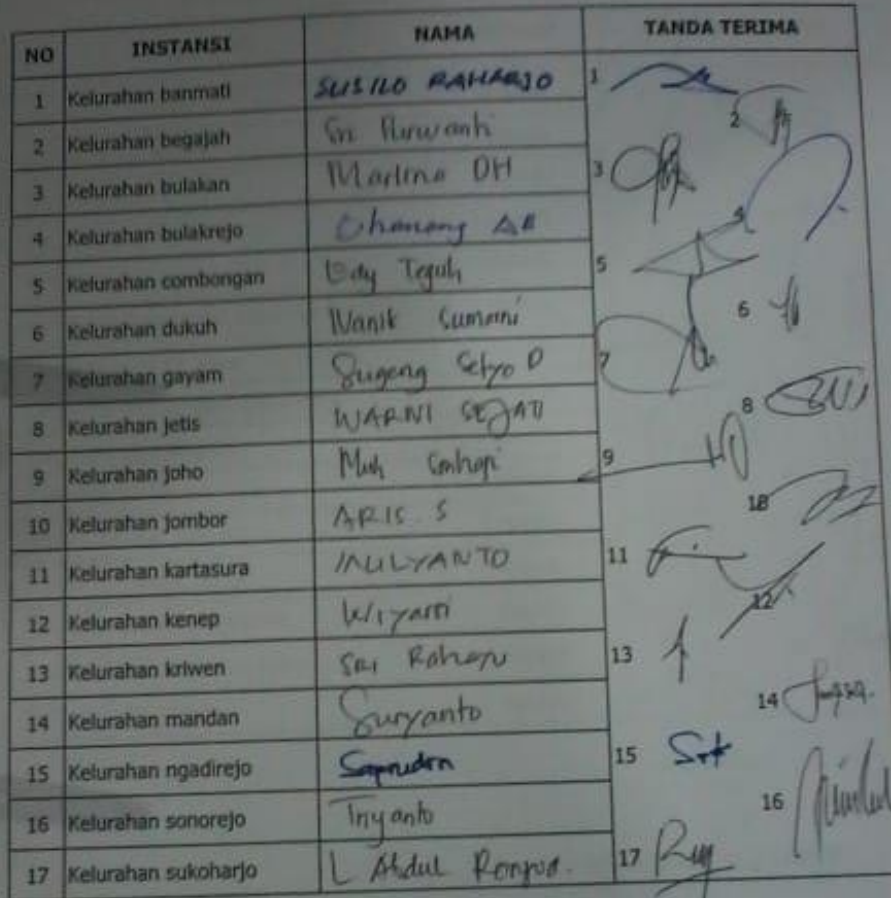 NO INSTANSI NAMA TANDA TERIMA
1 Kelurahan banmati SUSILO RAHARJO 1
2 Kelurahan begajah Sri Purwanti 2
3 Kelurahan bulakan Marlina DH 3
4 Kelurahan bulakrejo AB 4
5 Kelurahan combongan Edy Teguh 5
6 Kelurahan dukuh Nanik Sumarni 6
7 Kelurahan gayam Sugeng Setyo P 7
8 Kelurahan jetis WARNI SEJATI 8
9 Kelurahan joho Muh 9
10 Kelurahan jombor ARIS. S 10
11 Kelurahan kartasura MULYANTO 11
12 Kelurahan kenep Wiyarti 12
13 Kelurahan kriwen SRI Rahayu 13
14 Kelurahan mandan Suryanto 14
15 Kelurahan ngadirejo Saprudin 15
16 Kelurahan sonorejo Triyanto 16
17 Kelurahan sukoharjo L Abdul 17